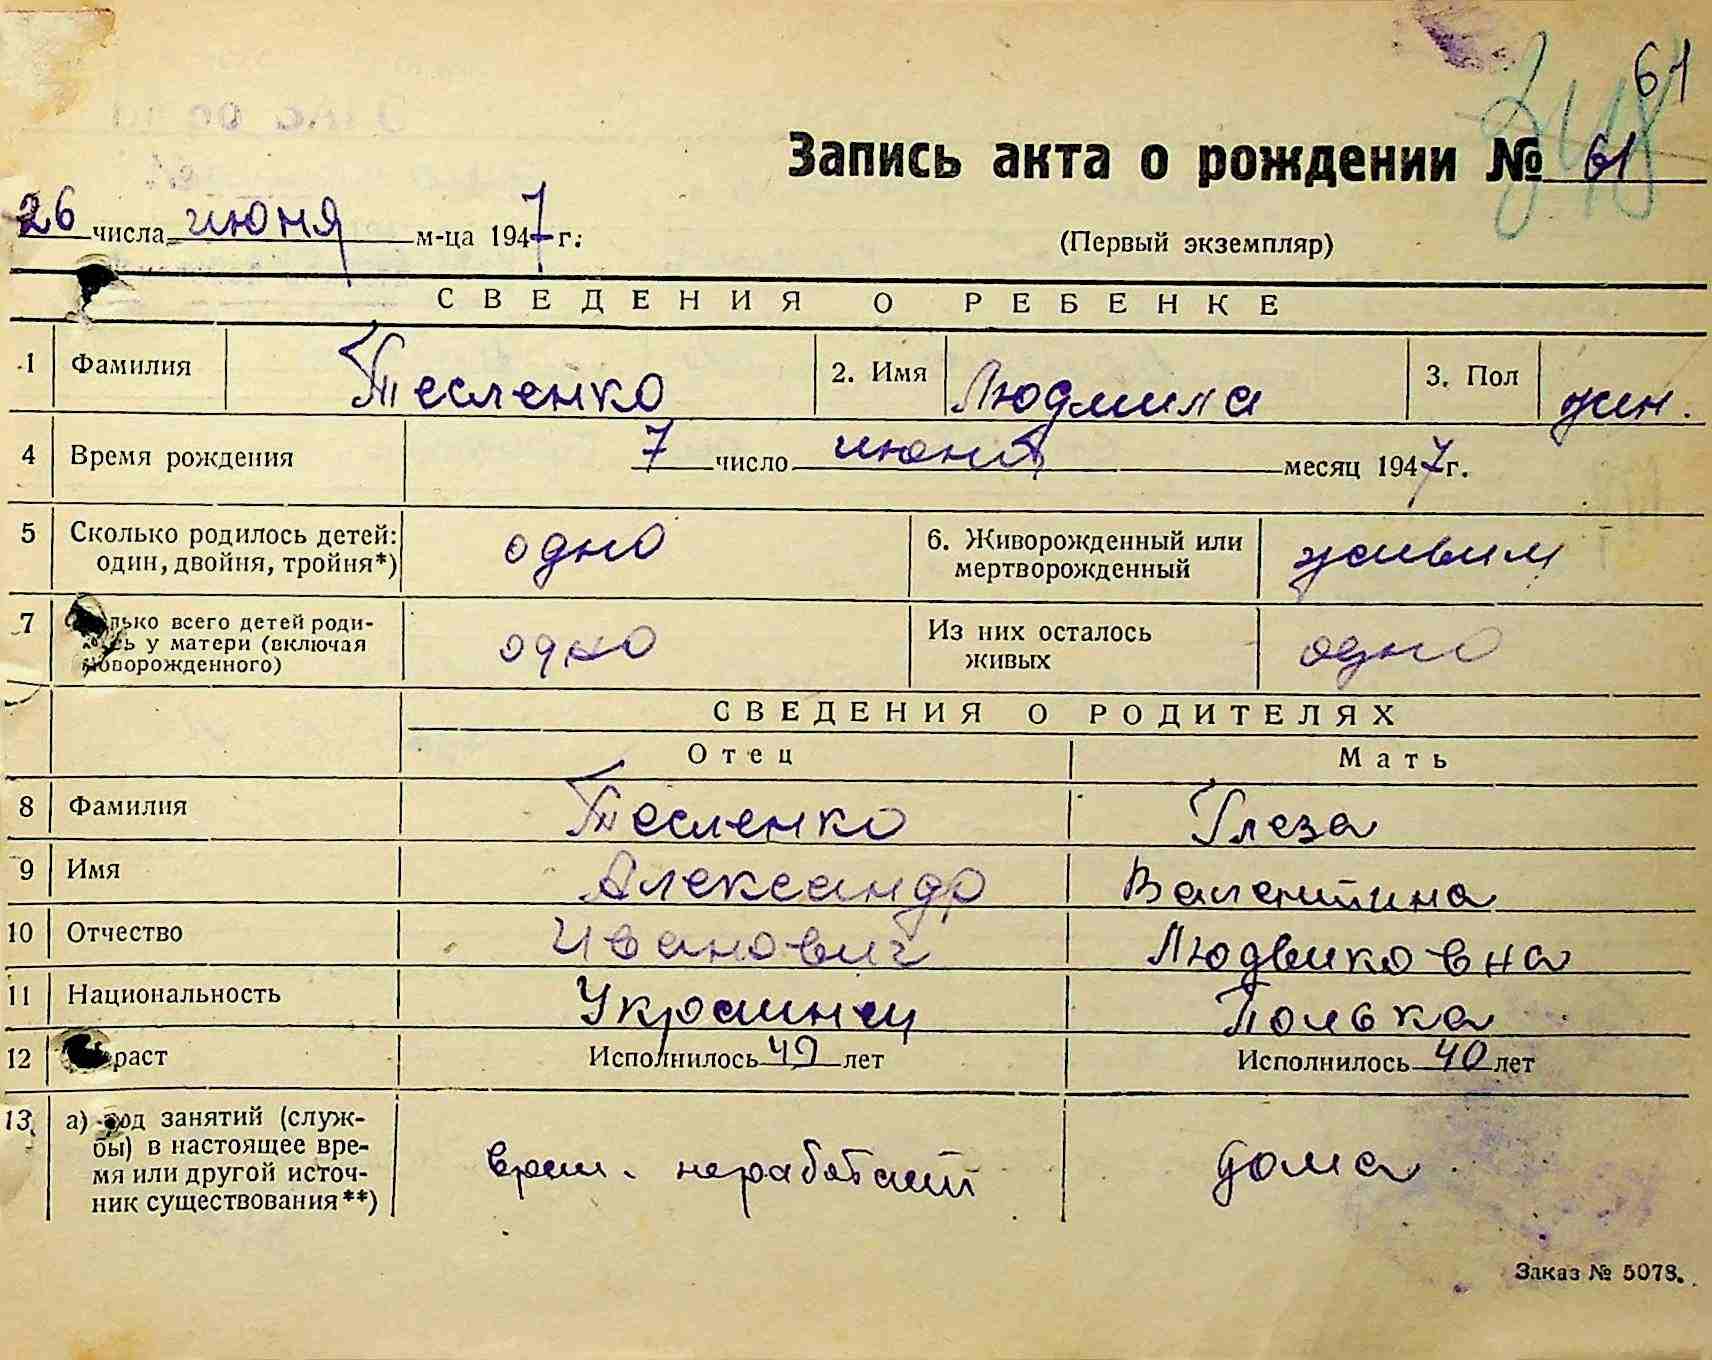 61
248
Запись акта о рождении № 61
26 числа июня м-ца 1947 г.
(Первый экземпляр)
СВЕДЕНИЯ О РЕБЕНКЕ
1 Фамилия Тесленко 2. Имя Людмила 3. Пол жин.
4 Время рождения 7 число июня месяц 1947 г.
5 Сколько родилось детей: одно 6. Живорожденный или живым
один, двойня, тройня*) мертворожденный
7 лько всего детей роди- одно Из них осталось одно
сь у матери (включая живых
новорожденного)
СВЕДЕНИЯ О РОДИТЕЛЯХ
Отец Мать
8 Фамилия Тесленко Глеза
9 Имя Александр Валентина
10 Отчество Иванович Людвиковна
11 Национальность Украинец Полька
12 раст Исполнилось лет Исполнилось 40 лет
13 а) род занятий (служ-
бы) в настоящее вре- врем. неработает дома
мя или другой источ-
ник существования**)
Заказ № 5078.